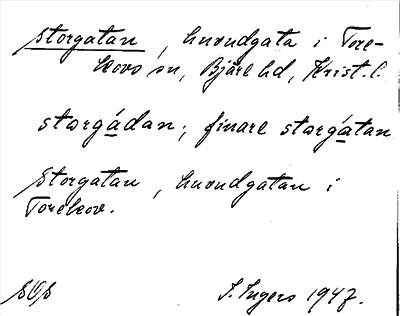 Storgatan, huvudgata i Tore-
kovs sn, Bjäre hd, Krist. l.
storgádan; finare storgátan
Storgatan, huvudgatan i
Torekov.
SOS I. Ingers 1947.